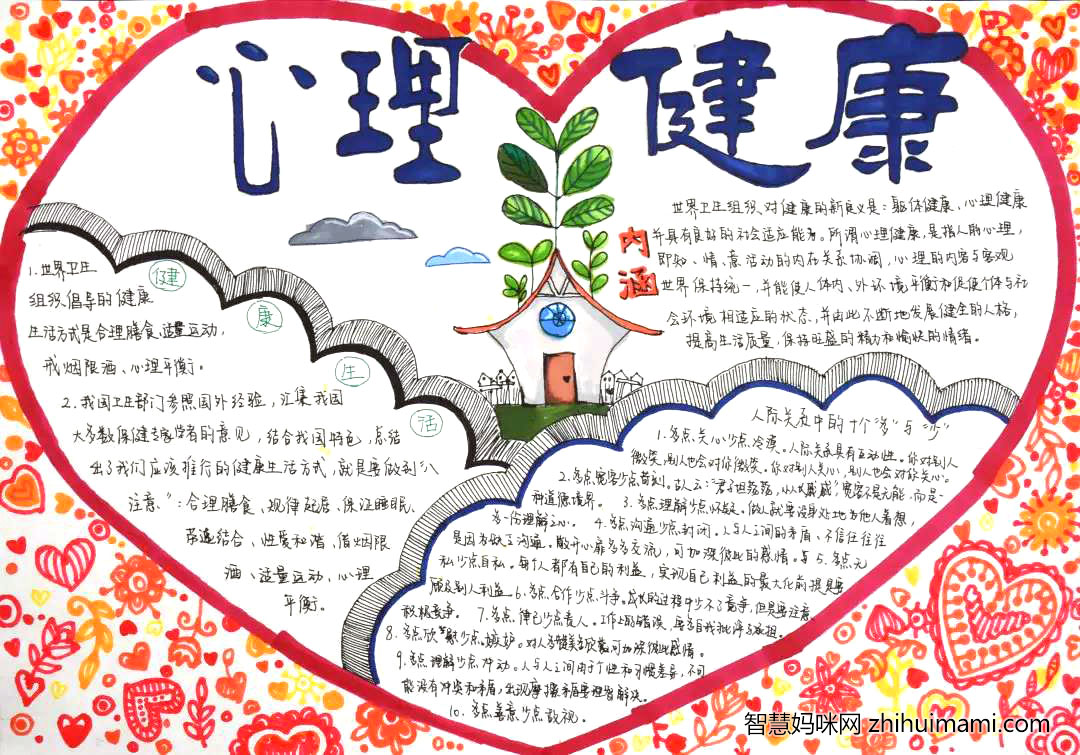 心理健康
健康生活
1.世界卫生
组织倡导的健康
生活方式是合理膳食、适量运动、
戒烟限酒、心理平衡。
2.我国卫生部门参照国外经验,汇集我国
大多数保健专家学者的意见,结合我国特色,总结
出了我们应该推行的健康生活方式,就是要做到"八
注意":合理膳食、规律起居、保证睡眠、
劳逸结合、性爱和谐、借烟限
酒、适量运动、心理
平衡。
内涵
世界卫生组织对健康的新定义是:躯体健康、心理健康
并具有良好的社会适应能力。所谓心理健康,是指人的心理,
即知、情、意活动的内在关系协调,心理的内容与客观
世界保持统一,并能使人体内、外环境平衡和促使个体与社
会环境相适应的状态,并由此不断地发展健全的人格,
提高生活质量,保持旺盛的精力和愉快的情绪。
人际关系中的十个"多"与"少"
1.多点关心少点冷漠。人际关系具有互动性。你对别人
微笑,别人也会对你微笑。你对别人关心,别人也会对你关心。
2.多点宽容少点苛刻。古人云:"君子坦荡荡,小人长戚戚"宽容不是无能,而是一
种道德境界。3.多点理解少点怀疑。做人就要设身处地为他人着想,
多一份理解之心。4.多点沟通少点封闭。人与人之间的矛盾、不信任往往
是因为缺了沟通,敞开心扉多多交流,可加深彼此的感情。5.多点无
私少点自私。每个人都有自己的利益,实现自己利益的最大化前提是要
顾及别人利益。6.多点合作少点斗争。成长的过程中少不了竞争,但是要注意
积极竞争。7.多点律己少点责人。工作上的错误,要多自我批评多承担。
8.多点欣赏少点嫉妒。对人多赞美多欣赏,可加深彼此感情。
9.多点理解少点冲动。人与人之间由于个性和习惯差异,不可
能没有冲突和矛盾,出现摩擦矛盾要理智解决。
10.多点善意少点敌视。
智慧妈咪网 zhihuimami.com